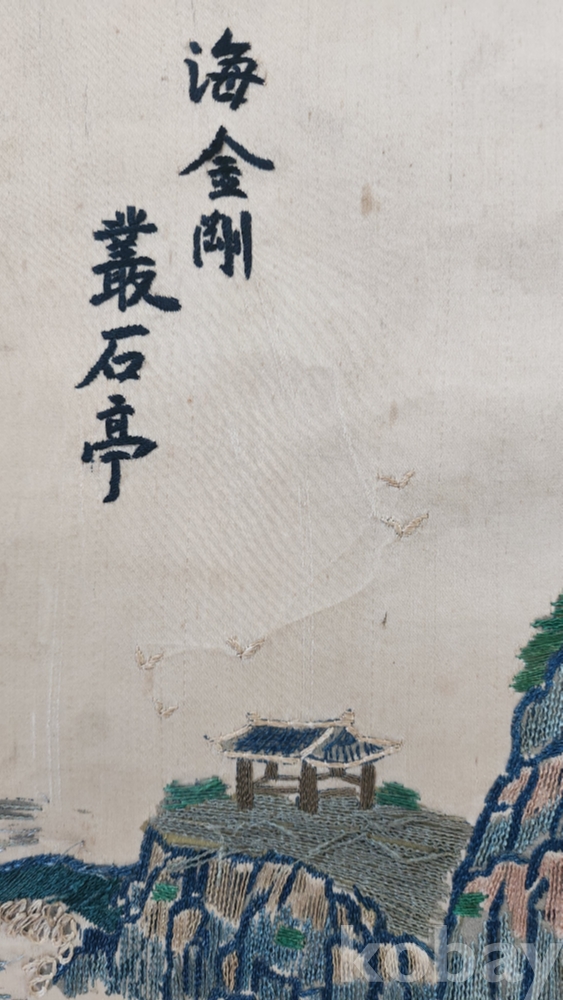 海金剛
叢石亭
kobay